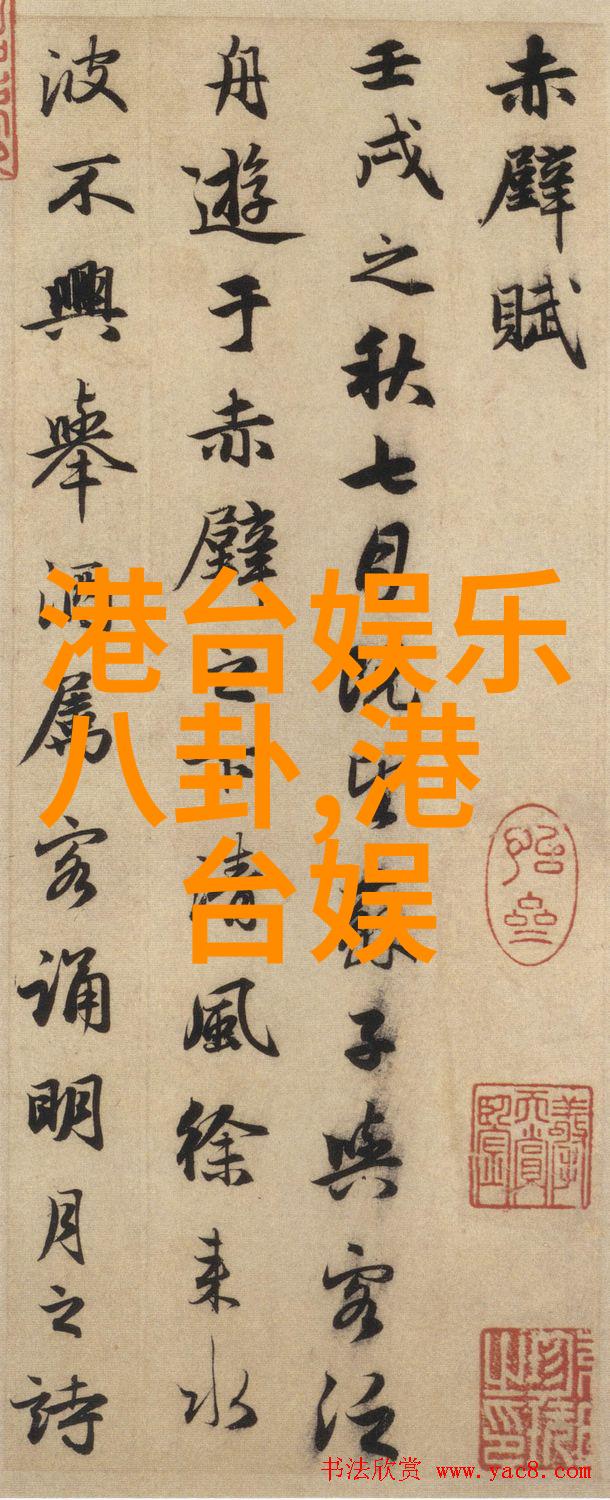 赤壁賦
壬戌之秋七月既望蘇子與客泛
舟遊于赤壁之下清風徐来水
波不興舉酒屬客誦明月之詩
港台娱乐
八卦,港
台娱
书法欣赏 www.yac8.com